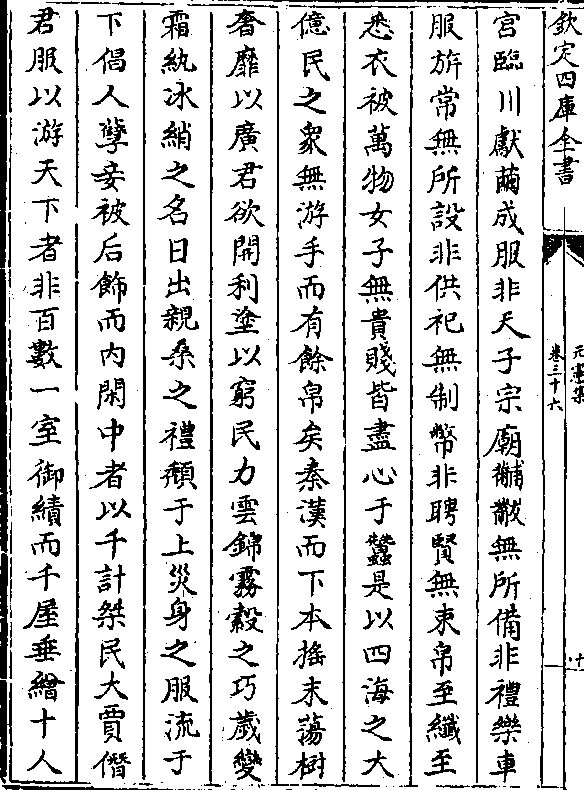 欽定四庫全書
元憲集
卷三十六
十
宮臨川獻繭成服非天子宗廟黼黻無所備非禮樂車
服旂常無所設非供祀無制幣非聘賢無束帛至纖至
悉衣被萬物女子無貴賤皆盡心于蠶是以四海之大
億民之衆無游手而有餘帛矣秦漢而下本搖末蕩樹
奢靡以廣君欲開利塗以窮民力雲錦霧縠之巧歲變
霜紈冰綃之名日出親桑之禮頽于上災身之服流于
下倡人孽妾被后飾而内閑中者以千計桀民大賈僭
君服以游天下者非百數一室御績而千屋垂繒十人